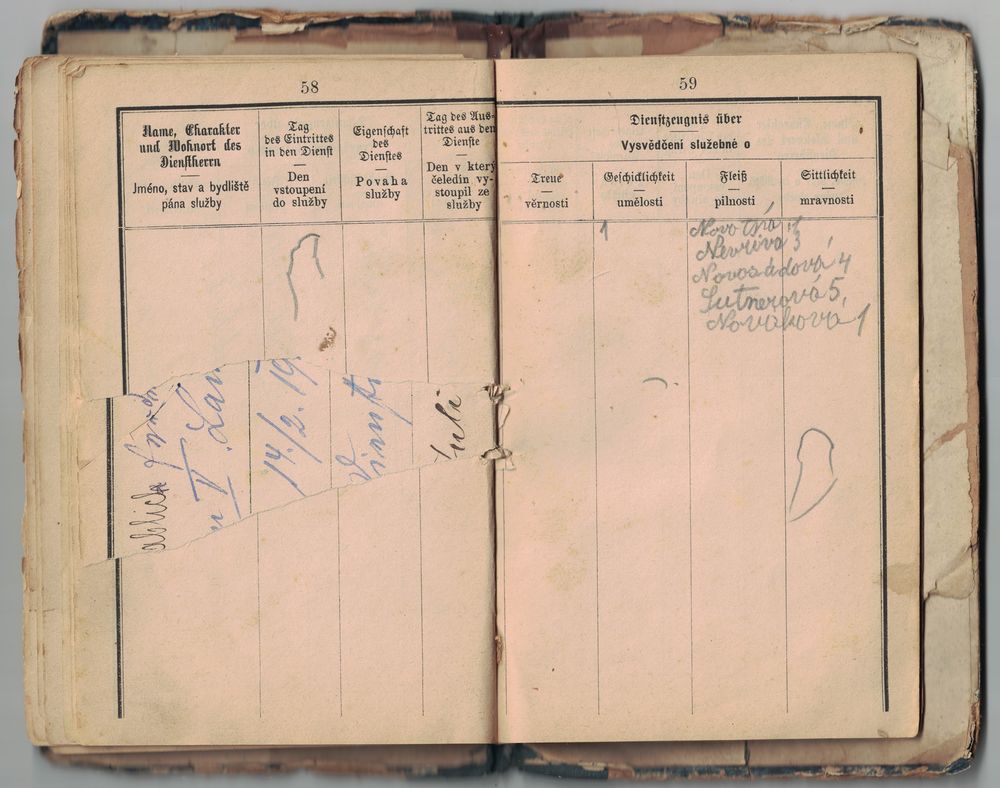 58
Name, Charakter
und Wohnort des
Dienstherrn
Jméno, stav a bydliště
pána služby
Tag
des Eintrittes
in den Dienst
Den
vstoupení
do služby
Eigenschaft
des
Dienstes
Povaha
služby
Tag des Aus-
trittes aus dem
Dienste
Den v který
čeledín vy-
stoupil ze
služby
14./2. 19
Dienst
Juli
59
Dienstzeugnis über
Vysvědčení služebné o
Treue
věrnosti
Geschicklichkeit
umělosti
Fleiß
pilnosti
Sittlichkeit
mravnosti
1
Novotná 1
Nevřivá 3
Novosádová 4
Lutnerová 5.
Nováková 1